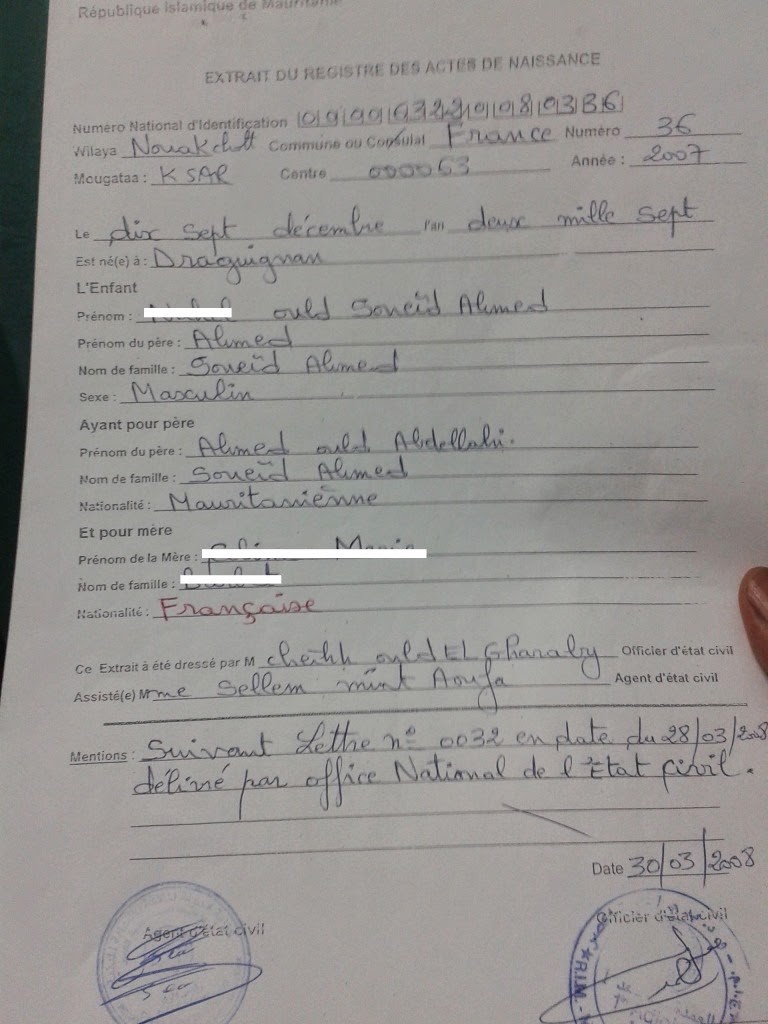 République Islamique de Mauritanie
EXTRAIT DU REGISTRE DES ACTES DE NAISSANCE
Numéro National d'Identification
Wilaya Nouakchott Commune ou Consulat France Numéro 36
Mougataa : KSAR Centre 000063 Année : 2007
Le dix sept décembre l'an deux mille sept
Est né(e) à : Draguignan
L'Enfant
Prénom : ould Soueïd Ahmed
Prénom du père : Ahmed
Nom de famille : Soueïd Ahmed
Sexe : Masculin
Ayant pour père
Prénom du père : Ahmed ould Abdellahi.
Nom de famille : Soueïd Ahmed
Nationalité : Mauritaniénne
Et pour mère
Prénom de la Mère :
Nom de famille :
Nationalité : Française
Ce Extrait à été dressé par M cheikh ould EL Gharaby Officier d'état civil
Assisté(e) Mme Sellem mint Aoufa Agent d'état civil
Mentions : Suivant Lettre n° 0032 en date du 28/03/2008
délivré par office National de l'Etat civil.
Date 30/03/2008
Agent d'état civil Officier d'état civil
R.I.M.